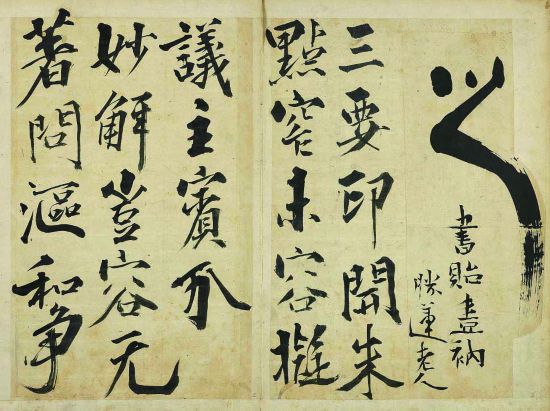 書貽壹衲
勝蓮老人
三要印開朱
點窄未容擬
議主賓分
妙解豈容无
著問漚和争